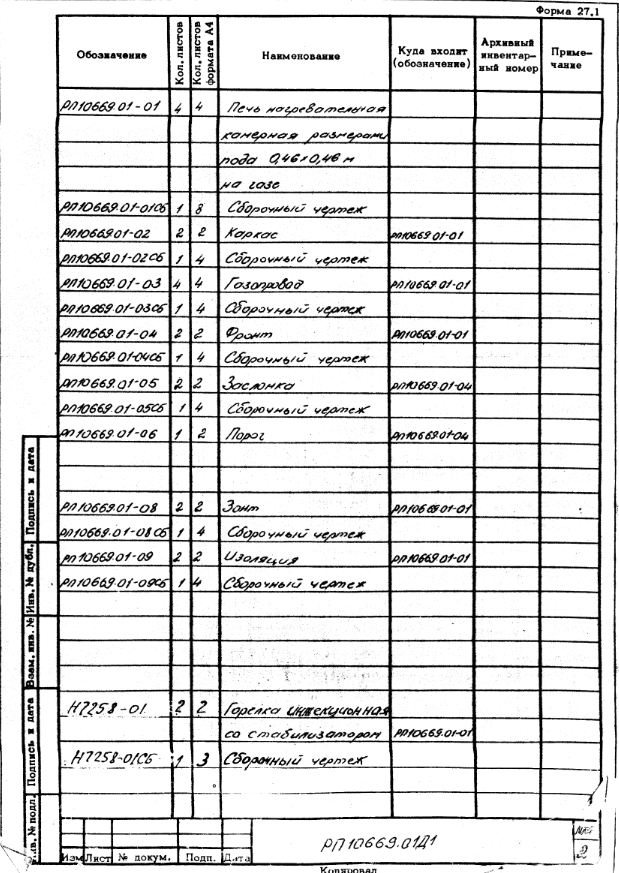 Форма 27.1
Обозначение Кол. листов Кол. листов формата А4 Наименование Куда входит (обозначение) Архивный инвентарный номер Примечание
РП10669.01-01 4 4 Печь нагревательная
камерная размерами
пода 0,46×0,46 м
на газе
РП10669.01-01СБ 1 8 Сборочный чертеж
РП10669.01-02 2 2 Каркас РП10669.01-01
РП10669.01-02СБ 1 4 Сборочный чертеж
РП10669.01-03 4 4 Газопровод РП10669.01-01
РП10669.01-03СБ 1 4 Сборочный чертеж
РП10669.01-04 2 2 Фронт РП10669.01-01
РП10669.01-04СБ 1 4 Сборочный чертеж
РП10669.01-05 2 2 Заслонка РП10669.01-04
РП10669.01-05СБ 1 4 Сборочный чертеж
РП10669.01-06 1 2 Порог РП10669.01-04
РП10669.01-08 2 2 Зонт РП10669.01-01
РП10669.01-08СБ 1 4 Сборочный чертеж
РП10669.01-09 2 2 Изоляция РП10669.01-01
РП10669.01-09СБ 1 4 Сборочный чертеж
Н7258-01 2 2 Горелка инжекционная
со стабилизатором РП10669.01-01
Н7258-01СБ 1 3 Сборочный чертеж
Подпись и дата
Инв. № дубл.
Взам. инв. №
Подпись и дата
Инв. № подл.
РП10669.01Д1
Лист
2
Изм Лист № докум. Подп. Дата
Копировал